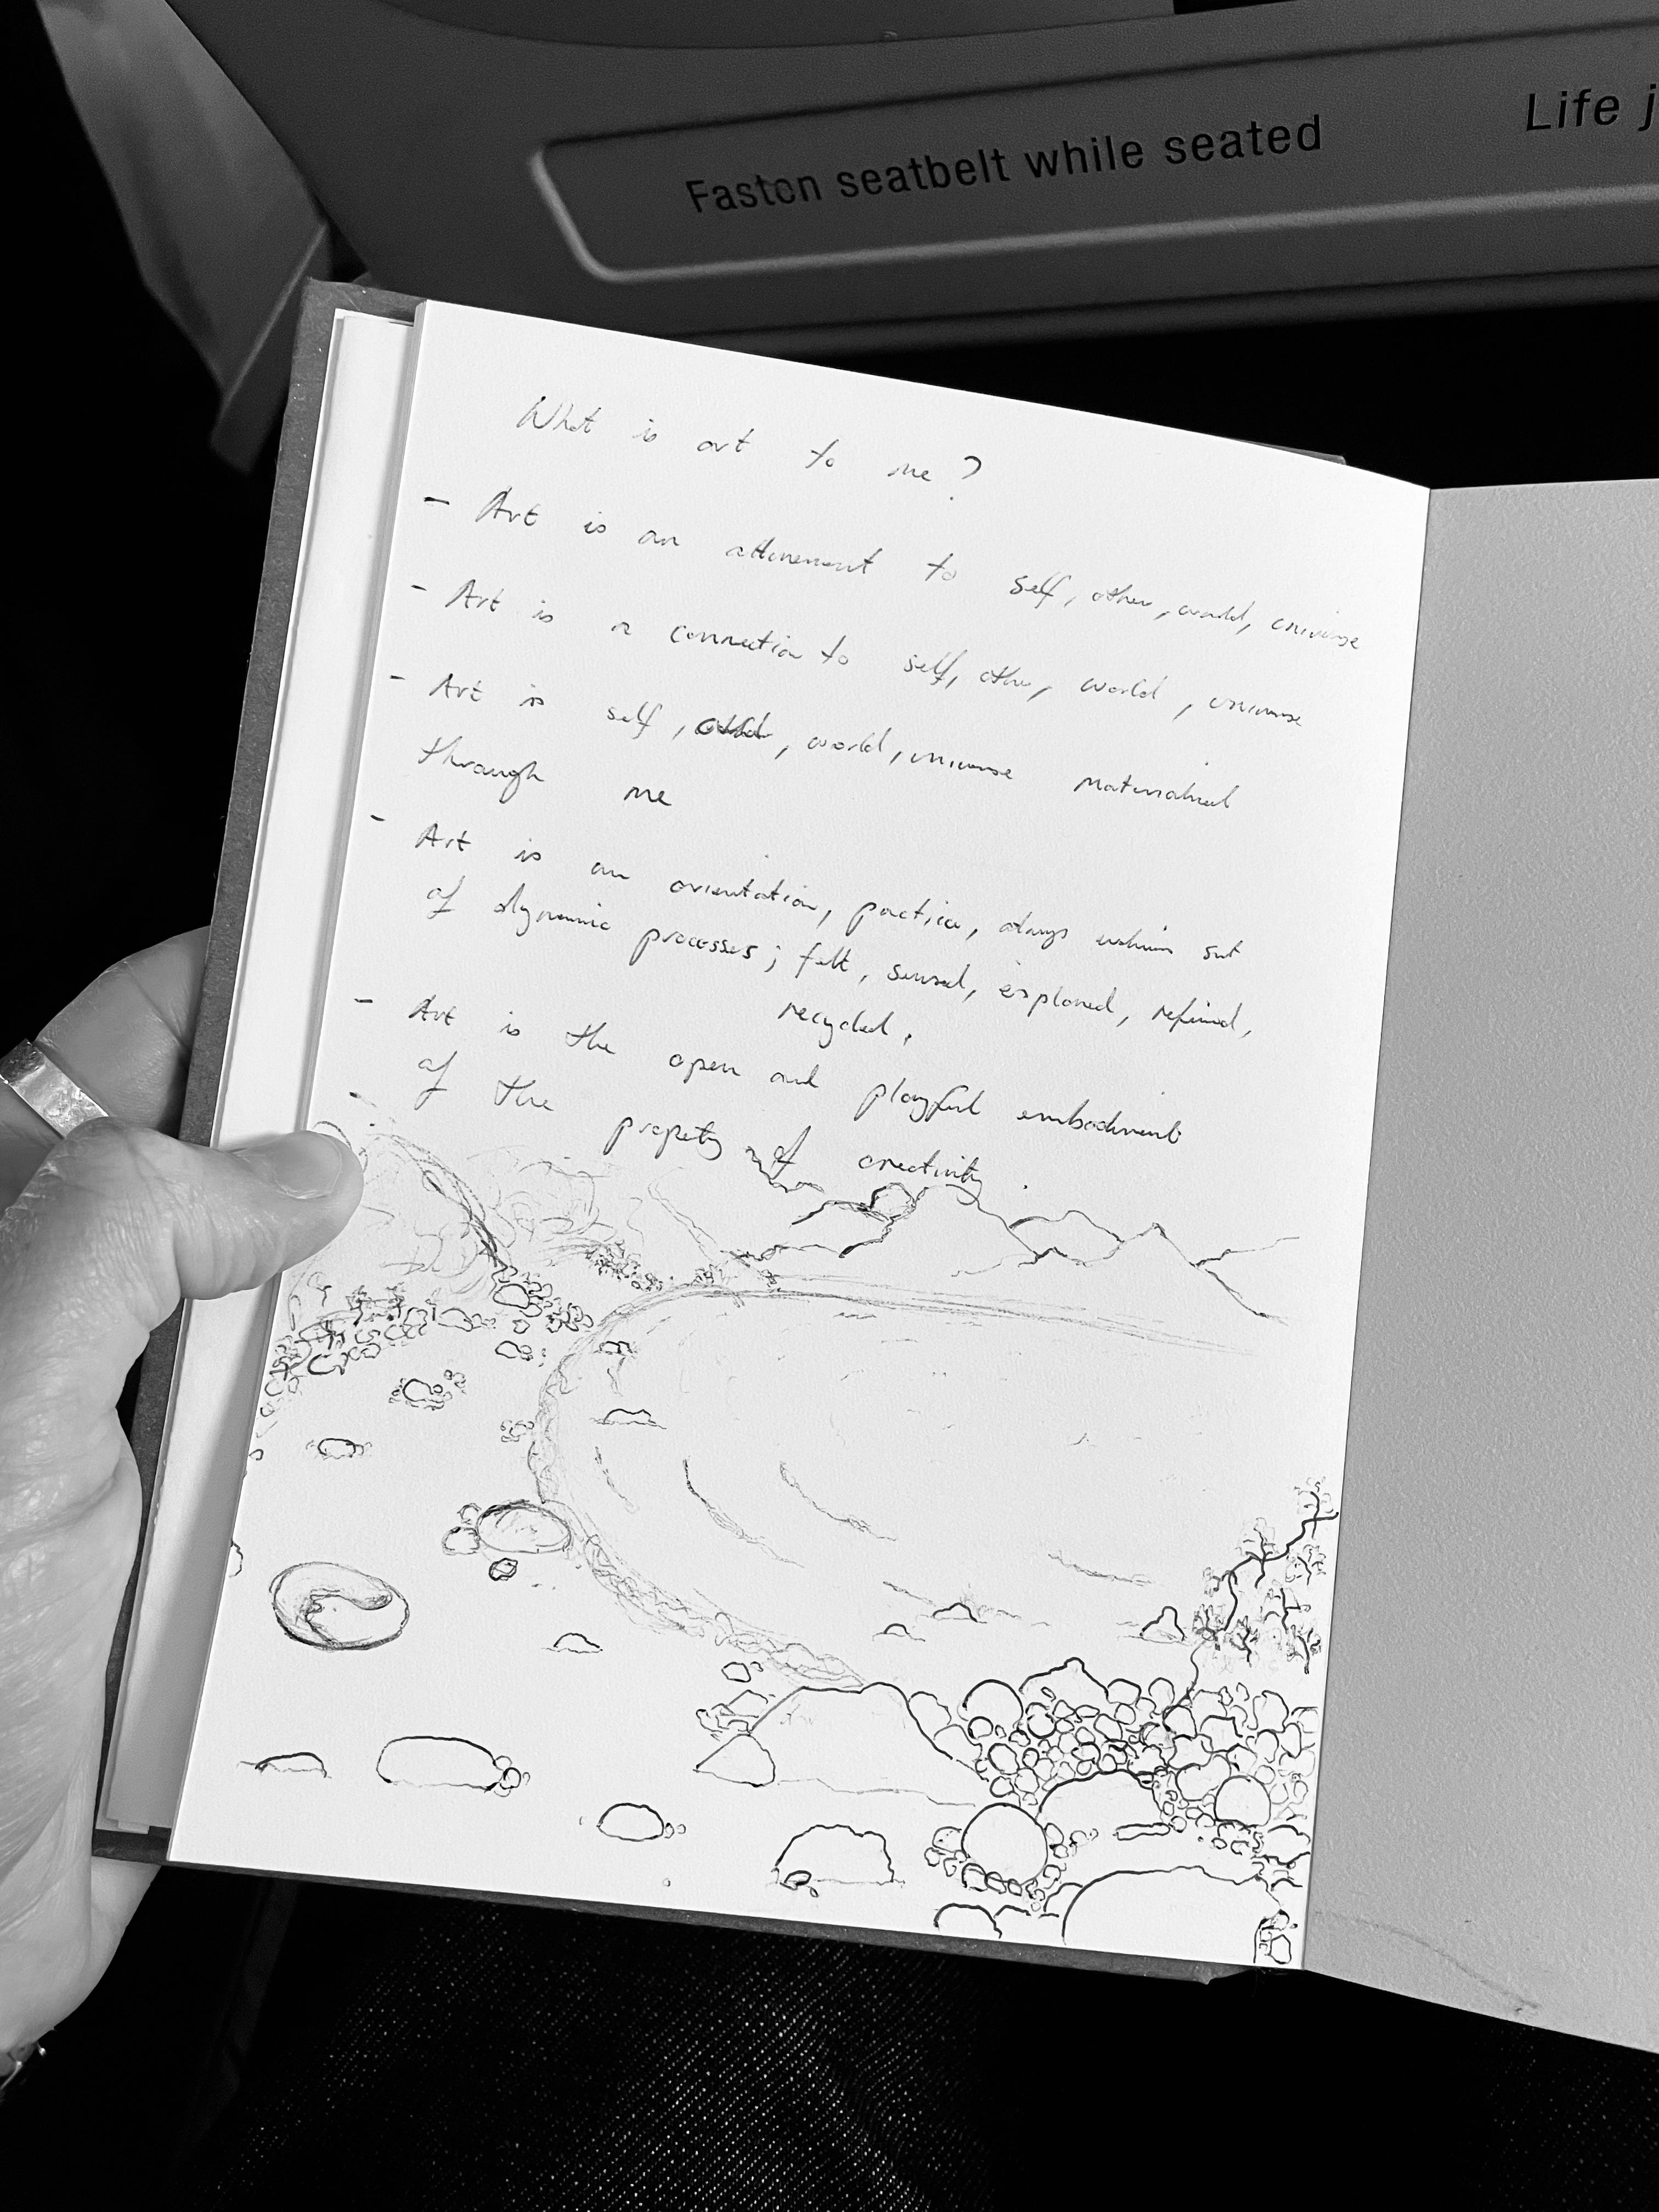 Fasten seatbelt while seated
Life j
What is art to me?
- Art is an attunement to self, other, world, universe
- Art is a connection to self, other, world, universe
- Art is self, other, world, universe materialised
through me
- Art is an orientation, practice, always within set
of dynamic processes; felt, sensed, explored, refined,
recycled.
- Art is the open and playful embodiment
of the property of creativity.
-